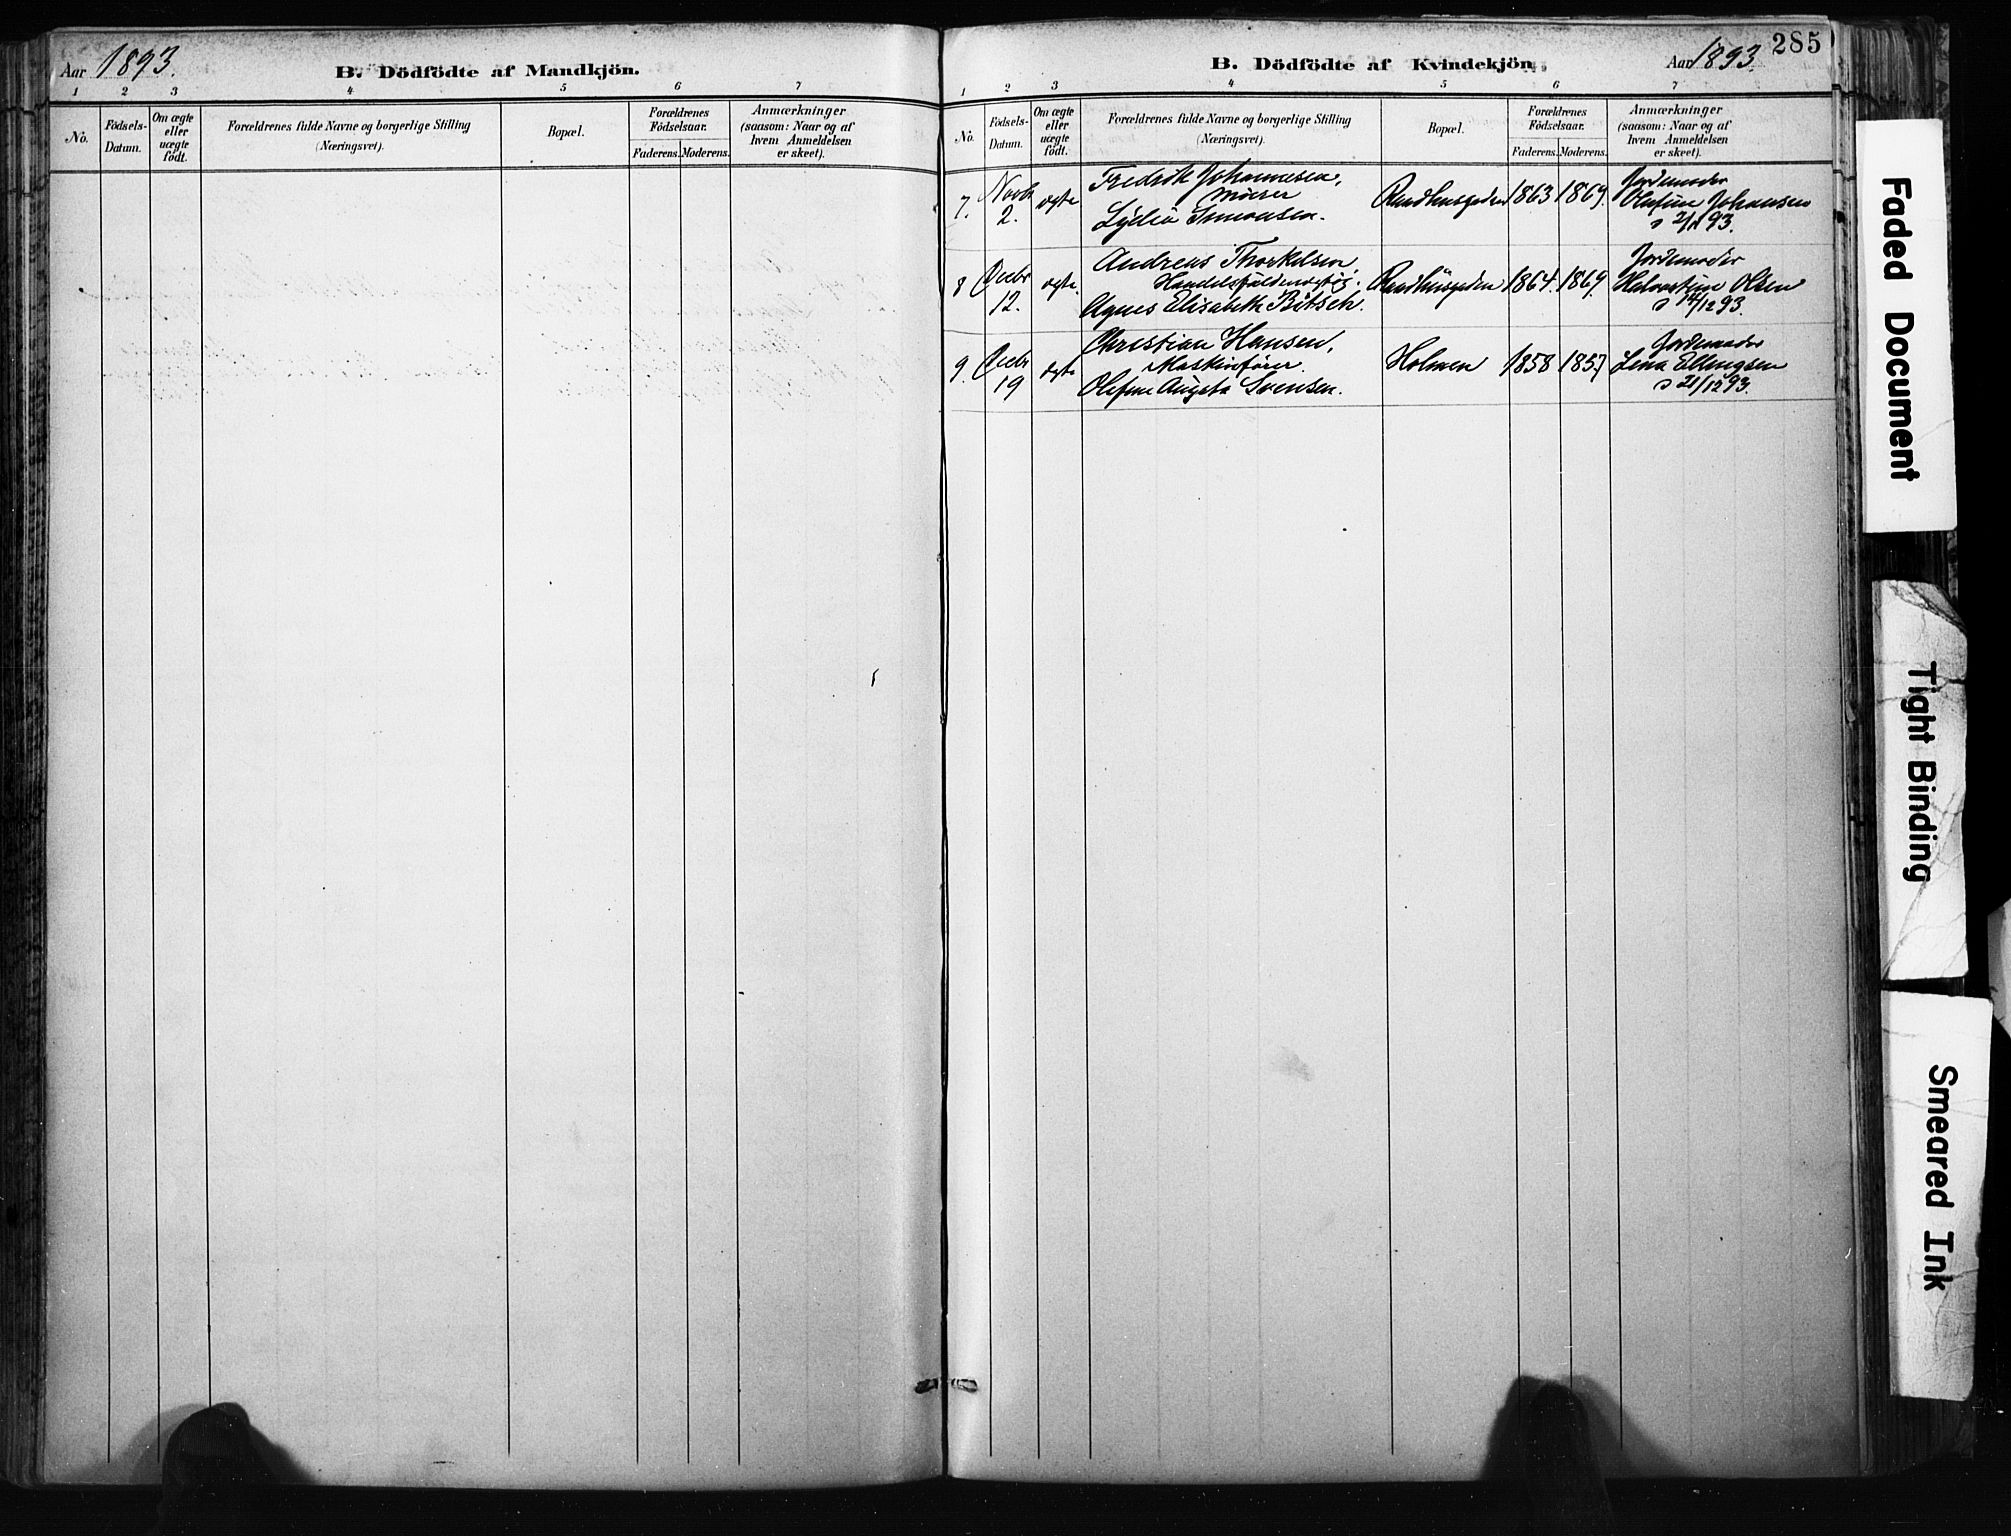 Aar 1893.
B. Dödfödte af Mandkjön.
1 2 3 4 5 6 7
No.
Födsels-
Datum.
Om ægte
eller
uægte
födt.
Forældrenes fulde Navne og borgerlige Stilling
(Næringsvei).
Bopæl.
Forældrenes
Födselsaar.
Faderens.
Moderens.
Anmærkninger
(saasom: Naar og af
hvem Anmeldelsen
er skeet).
B. Dödfödte af Kvindekjön.
Aar 1893.
285
1 2 3 4 5 6 7
No.
Födsels-
Datum.
Om ægte
eller
uægte
födt.
Forældrenes fulde Navne og borgerlige Stilling
(Næringsvei).
Bopæl.
Forældrenes
Födselsaar.
Faderens.
Moderens.
Anmærkninger
(saasom: Naar og af
hvem Anmeldelsen
er skeet).
7. Novb. 2. ægte
Fredrik Johannesen,
Murer
Lydia Simonsen.
1863 1869.
Jordemoder
Olufine Johansen
93.
8 Decbr 12. ægte.
Andreas Thorkelsen
Handelsfuldmægtig.
Agnes Elisabeth
1864. 1869.
Jordemoder
Olsen
14/12 93.
9. Decbr 19 ægte
Christian Hansen,
Maskinfører.
Olefine Augusta Svensen.
Holmen
1858 1857
Jordemoder
Lina Ellingsen
21/12 93.
Faded Document
Tight Binding
Smeared Ink